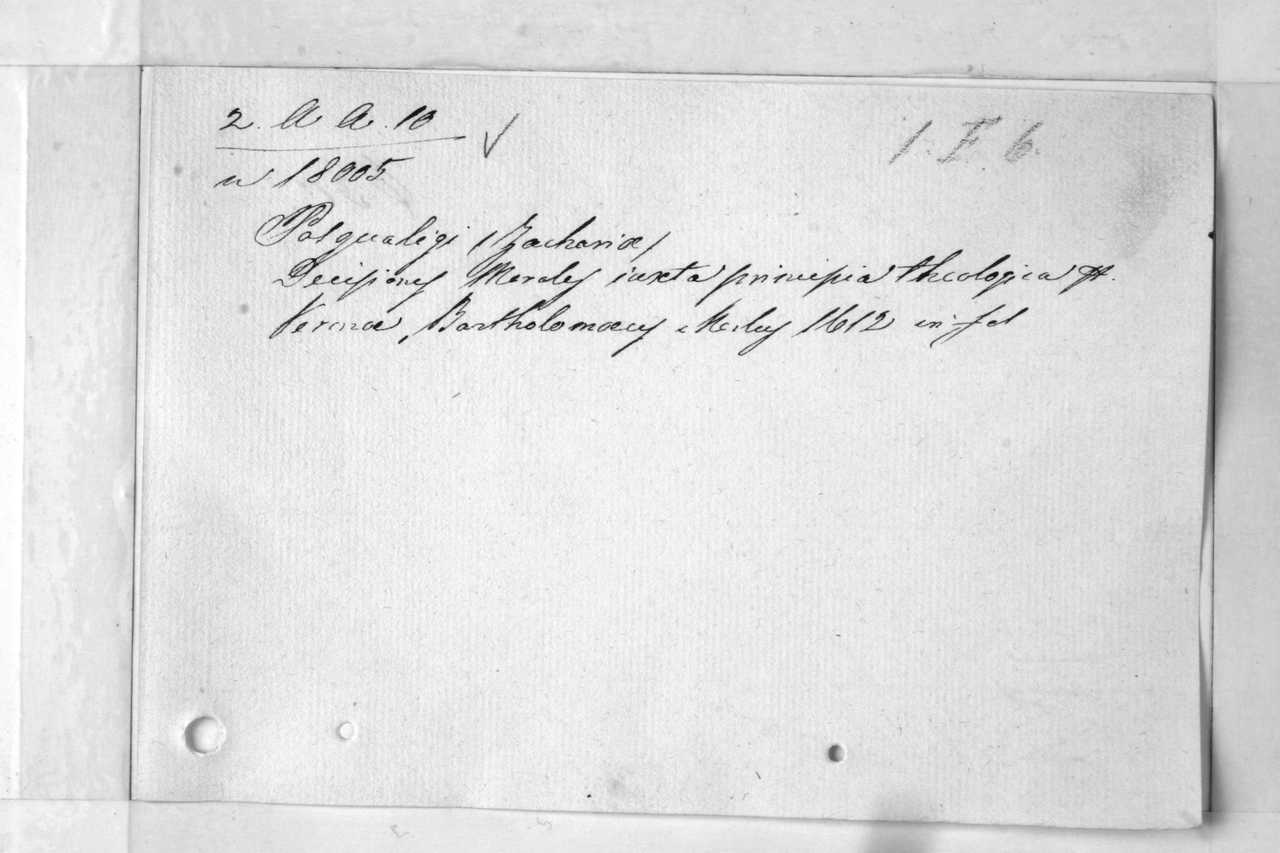 2. A A. 10
1. F 6.
n 18005
Pasqualigi (Zachariæ)
Decisiones Morales iuxta principia theologica &.
Veronæ, Bartholomæus Merlus 1612 in fol